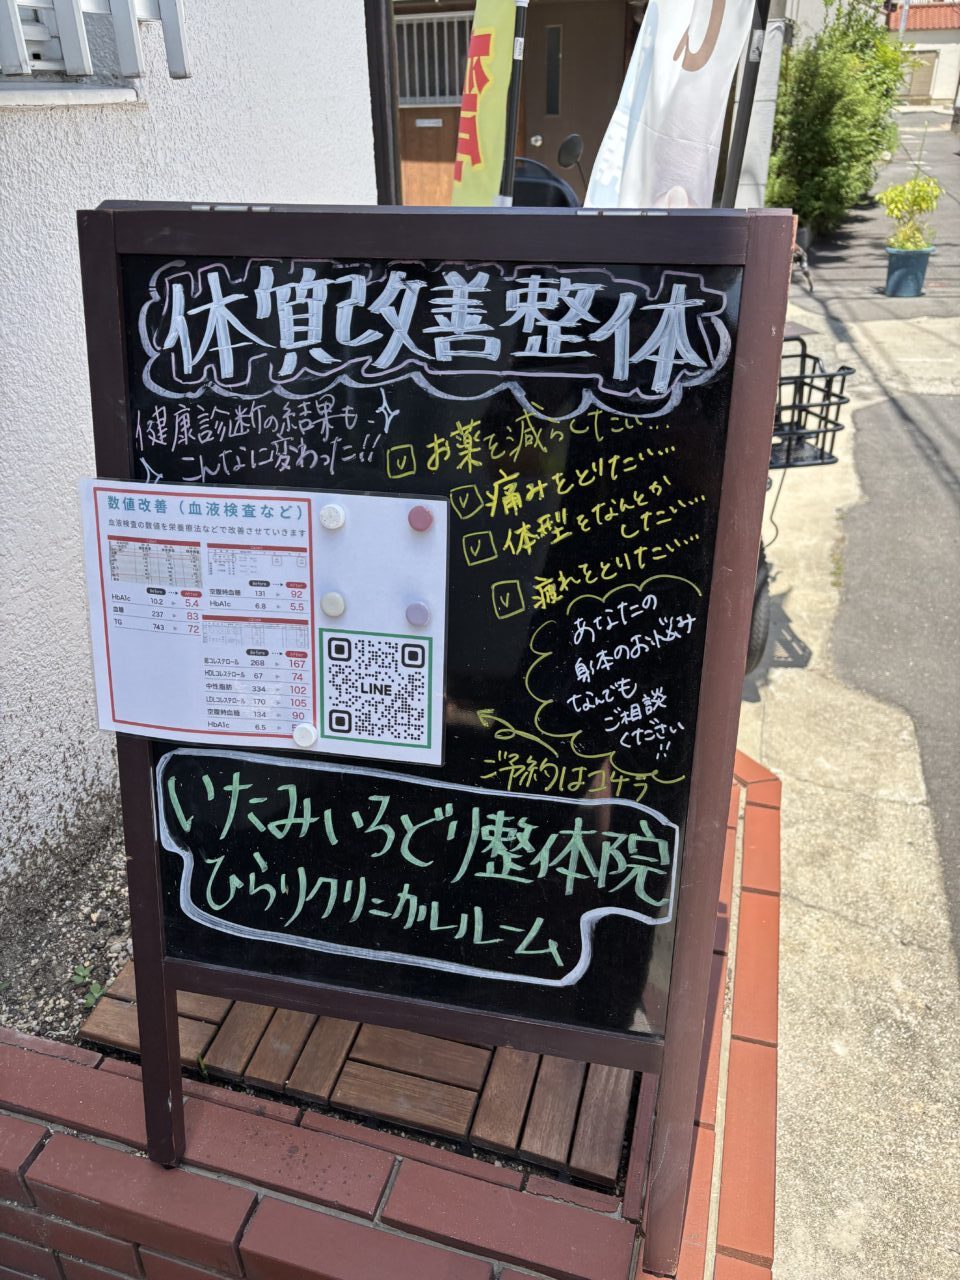 体質改善整体
健康診断の結果も
こんなに変わった!!
お薬を減らしたい…
痛みをとりたい…
体型をなんとか
したい…
疲れをとりたい…
数値改善（血液検査など）
血液検査の数値を栄養療法などで改善させていきます
Before → After
HbA1c 10.2 ▶ 5.4
血糖 237 ▶ 83
TG 743 ▶ 72
Before → After
空腹時血糖 131 ▶ 92
HbA1c 6.8 ▶ 5.5
Before → After
総コレステロール 268 ▶ 167
HDLコレステロール 67 ▶ 74
中性脂肪 334 ▶ 102
LDLコレステロール 170 ▶ 105
空腹時血糖 134 ▶ 90
HbA1c 6.5 ▶
LINE
あなたの
身体のお悩み
なんでも
ご相談
ください
!!
ご予約はコチラ
いたみいろどり整体院
ひらりクリニカルルーム